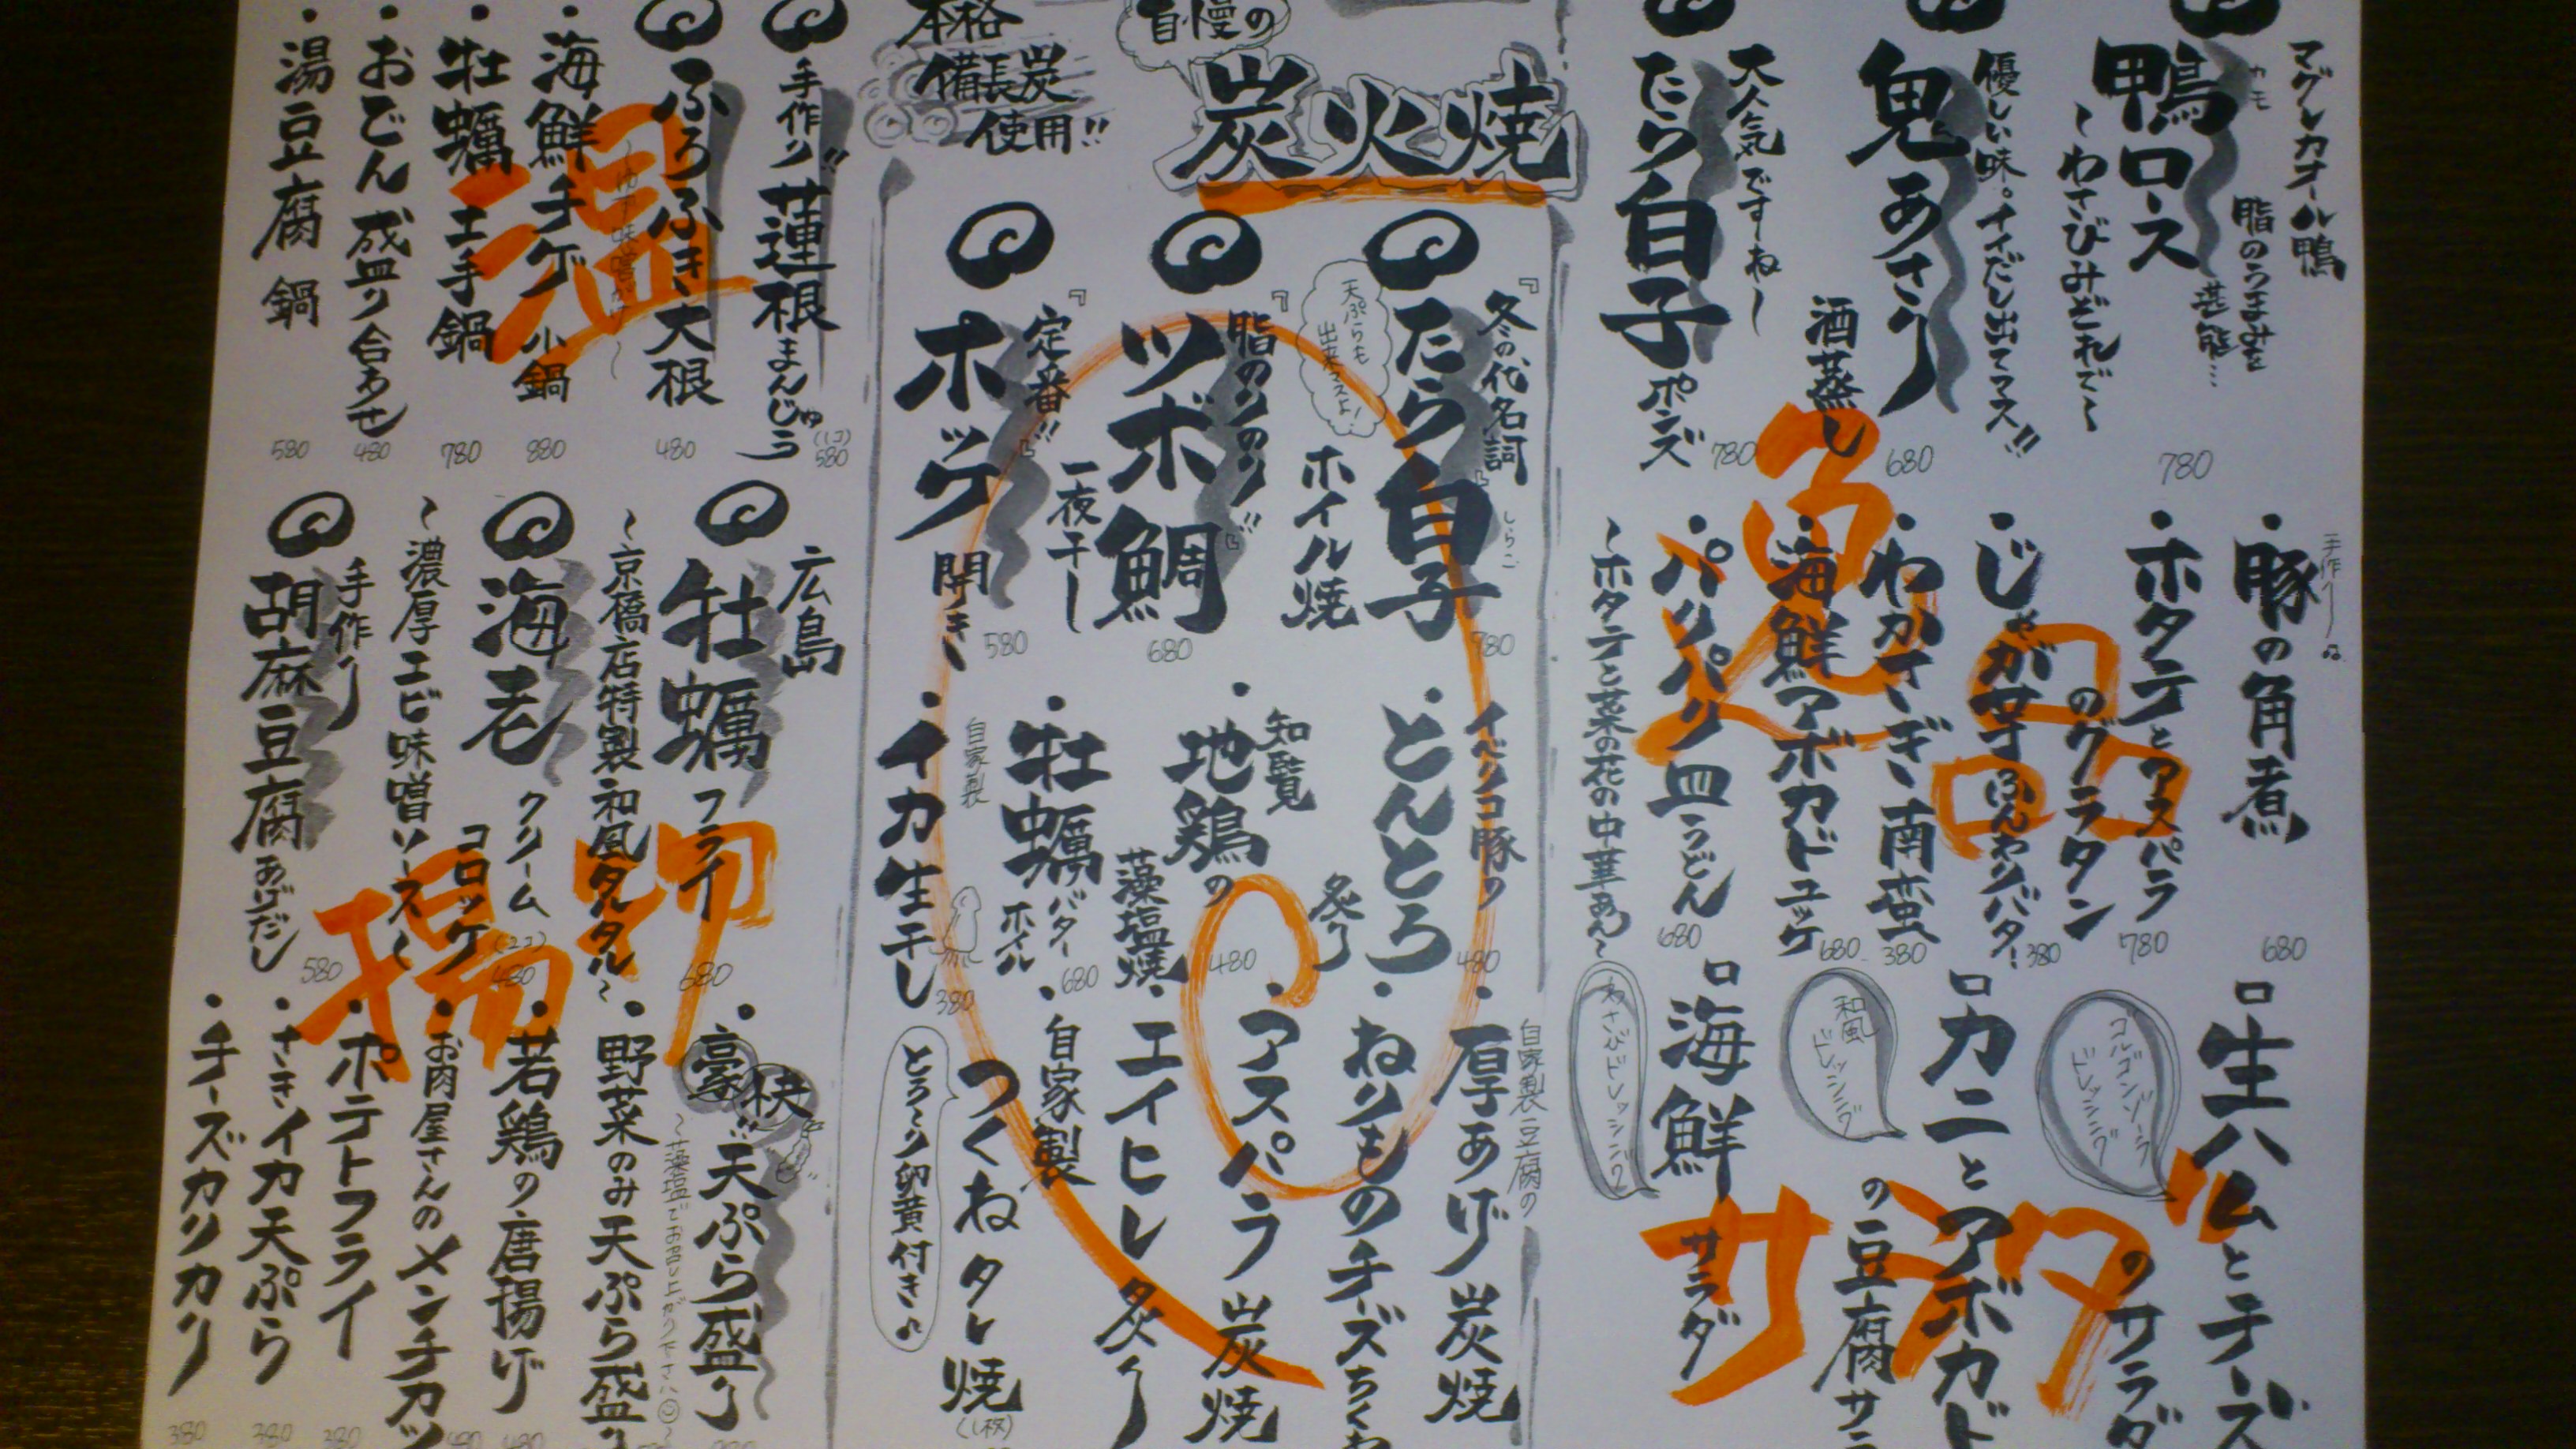 マグレカオール鴨
脂のうまみを
堪能…
カモ
鴨ロース
～わさびみぞれで～
780
優しい味。イイだし出てマス!!
鬼あさり
酒蒸し
680
大人気ですーねー
たら白子
ポンズ
780
手作り♫
・豚の角煮
680
・ホタテとアスパラ
のグラタン
780
・じゃが芋ふんわりバター
380
・わかさぎ南蛮
380
・海鮮アボカドユッケ
680
・パリパリ皿うどん
～ホタテと菜の花の中華あん～
680
逸品
サラダ
ロ生ハムとチーズ
のサラダ
ゴルゴンゾーラ
ドレッシング
ロカニとアボカド
の豆腐サラ
和風
ドレッシング
ロ海鮮
サラダ
わさびドレッシング
自慢の
炭火焼
本格
備長炭
使用!!
『冬の代名詞』
たら白子
しらこ
ホイル焼
天ぷらも
出来マスよ!
780
『脂のりのり!!』
ツボ鯛
一夜干し
680
『定番!!』
ホッケ
開き
580
イベリコ豚の
・とんとろ
炙り
480
知覧
・地鶏の
藻塩焼
480
・牡蠣バター
ホイル
680
自家製
・イカ生干し
380
自家製豆腐の
・厚あげ炭焼
・ねりものチーズちくわ
・アスパラ炭焼
・エイヒレ炙り
・自家製
つくねタレ焼
(1本)
とろ～り卵黄付き♫
手作り!!蓮根まんじゅう
(1コ)
580
ふろふき大根
～ゆず味噌がけ～
480
・海鮮チゲ小鍋
880
・牡蠣土手鍋
780
・おでん盛り合わせ
480
・湯豆腐鍋
580
温
広島
牡蠣フライ
～京橋店特製和風タルタル～
680
海老クリーム
コロッケ
(2コ)
480
～濃厚エビ味噌ソース～
手作り
胡麻豆腐あげだし
580
揚物
・豪快!!天ぷら盛り
～藻塩でお召し上がり下さい☺～
・野菜のみ天ぷら盛り
・若鶏の唐揚げ
480
・お肉屋さんのメンチカツ
480
・ポテトフライ
380
・さきイカ天ぷら
380
・チーズカリカリ
380